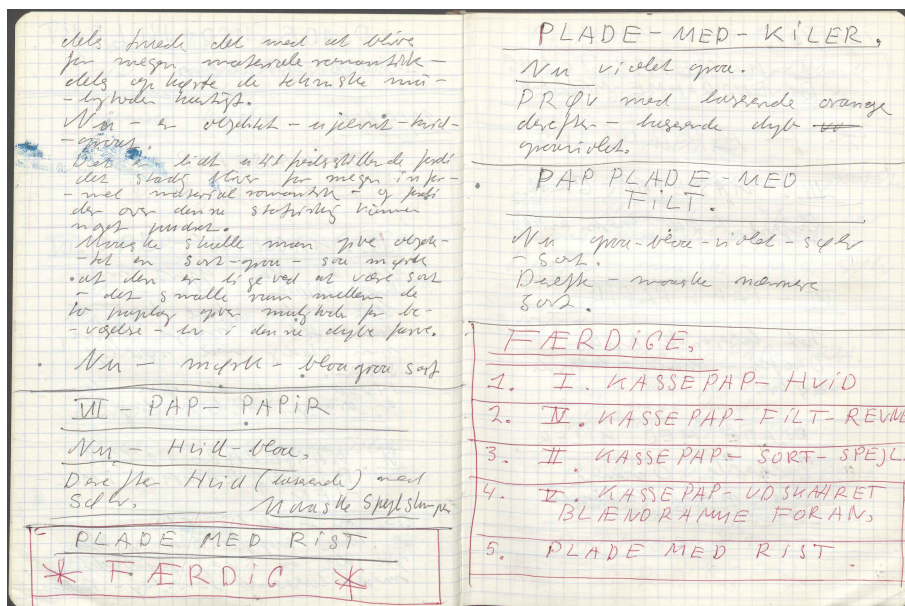 dels truede det med at blive
for megen materiale romantisk –
dels ophørte de tekniske mu-
-ligheder hurtigt.
Nu – er objektet – ujævnt – hvid-
-grøn.
Det er lidt utilfredsstillende fordi
det stadig bliver for megen infor-
mel material romantisk – og fordi
der over denne
noget pudset.
Maaske skulle man give objek-
-tet en sort-graa – saa mørk
at den er lige ved at være sort
– det smalle rum mellem de
to paplag giver mulighed for be-
-vægelse – i denne dybe farve.
Nu – mørk – blaa graa sort
VII – PAP – PAPIR
Nu – Hvid – blaa.
Derefter Hvid (laserende) med
Sølv. Maaske Spejlstumper
PLADE MED RIST
* FÆRDIG *
PLADE – MED – KILER.
Nu violet graa.
PRØV med laserende orange
derefter – laserende dyb
graaviolet.
PAP PLADE – MED
FILT.
Nu graa – blaa – violet – sølv
– sort.
Derefter – maaske nærmere
sort.
FÆRDIGE.
1. I. KASSEPAP – HVID
2. IV. KASSEPAP – FILT – REVNE
3. II. KASSEPAP – SORT – SPEJL.
4. V. KASSEPAP – UDSKAARET
BLÆNDRAMME FORAN.
5. PLADE MED RIST